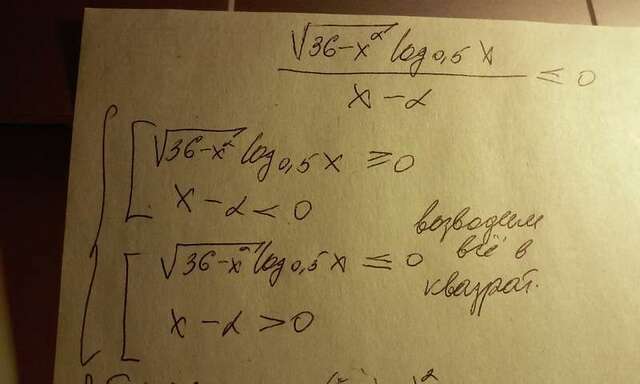 √36-x² log₀,₅x
x-2 ≤ 0
√36-x² log₀,₅x ≥ 0
x-2 < 0
√36-x² log₀,₅x ≤ 0
x-2 > 0
возводим
всё в
квадрат.